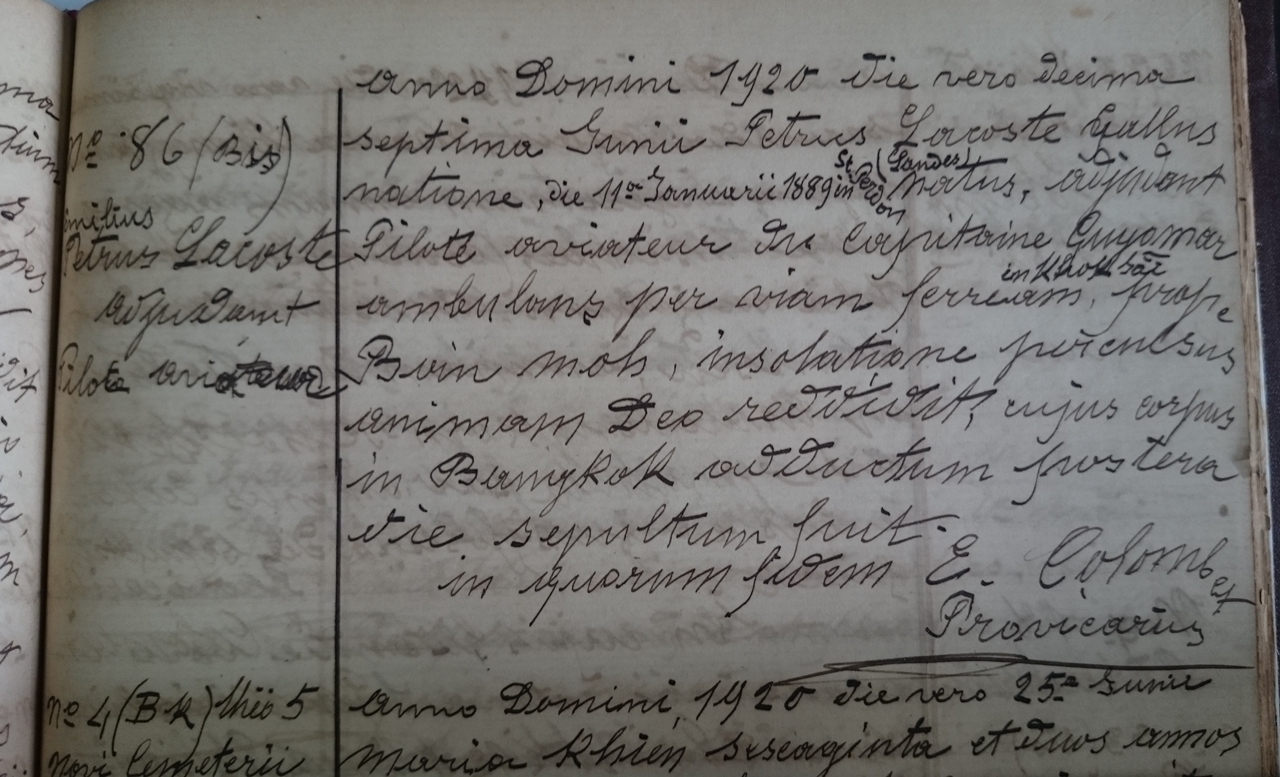 Nº 86 (Bis)
Emilius
Petrus Lacoste
adjudant
Pilote aviateur
Anno Domini 1920 die vero decima
septima Junii Petrus Lacoste Gallus
natione, die 11ª Januarii 1889 in St. Perdon (Landes) natus, adjudant
Pilote aviateur du Capitaine Guyomar
ambulans per viam ferream, in Khok prope
Boin moh, insolatione percussus
animam Deo reddidit, cujus corpus
in Bangkok adductum postera
die sepultum fuit.
in quorum fidem E. Colombet
Provicarius
Nº 4 (Bk) 5
Novi Cemeterii
Anno Domini, 1920 die vero 25ª Junii
Maria Khien sexaginta et duos annos